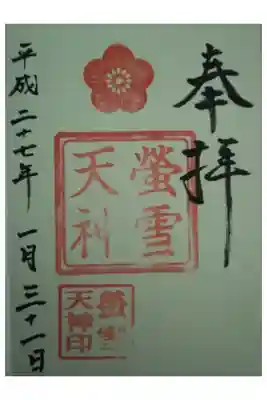 奉拝
螢雪
天神
螢雪
天神印
平成二十七年一月三十一日